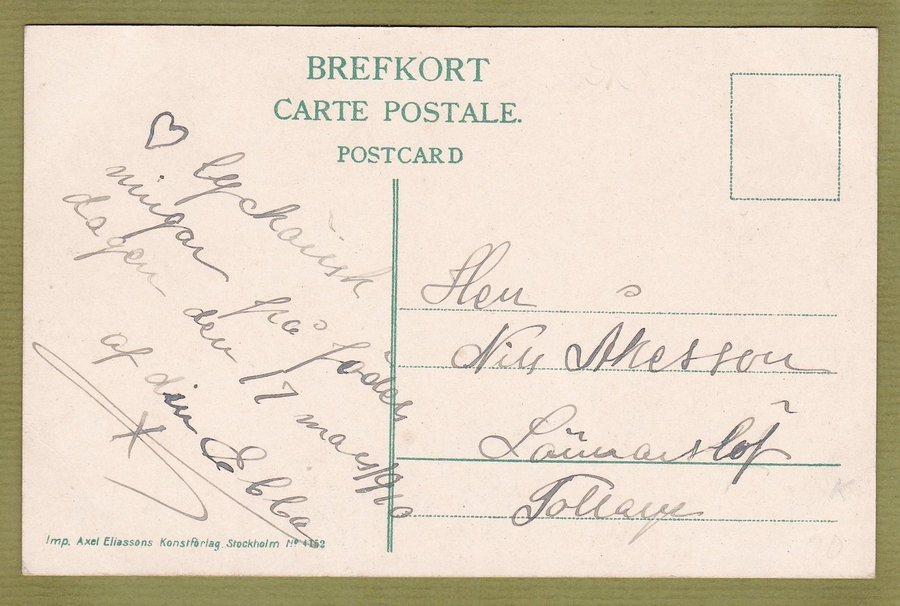 BREFKORT
CARTE POSTALE.
POSTCARD
lyckönsk
ningar på födels
dagen den 17 mars 1910
af din Ebba
Herr
Nils Åkesson
Tollarp
Imp. Axel Eliassons Konstförlag. Stockholm No 4152